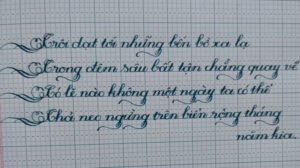 Trôi dạt tới những bến bờ xa lạ
Trong đêm sâu bất tận chẳng quay về
Có lẽ nào không một ngày ta có thể
Thả neo ngừng trên biển rộng tháng
năm kia.